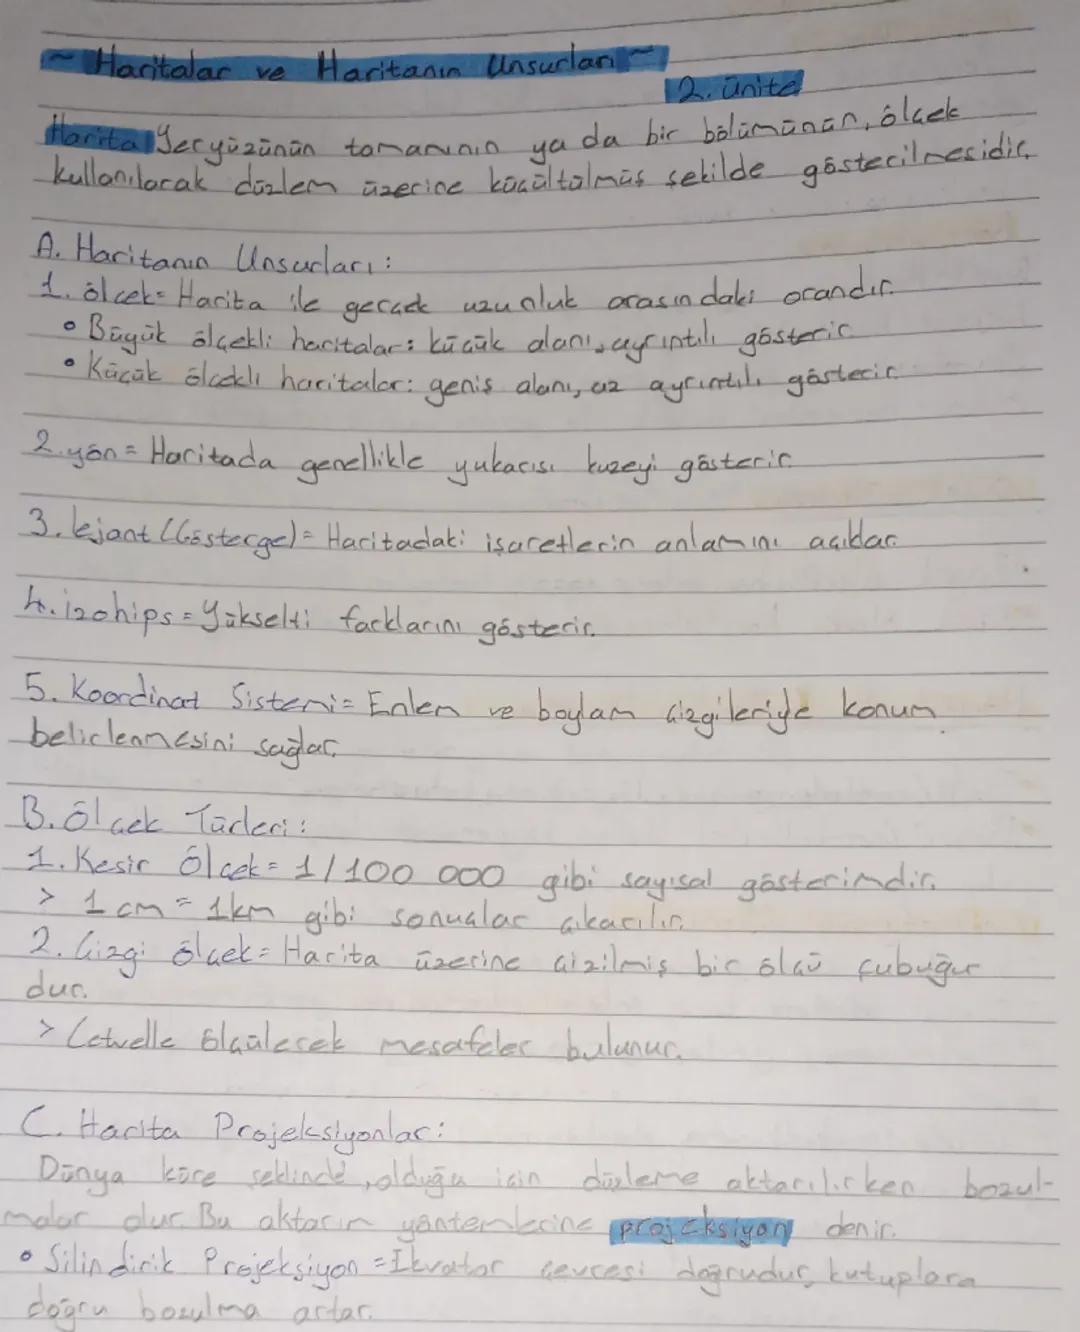 ~ Haritalar ve Haritanın Unsurları ~
2. ünite
Harita Yeryüzünün tamamının ya da bir bölümünün, ölçek
kullanılarak düzlem üzerine küçültülmüş şekilde gösterilmesidir.
A. Haritanın Unsurları:
1. ölçek= Harita ile gerçek uzunluk arasındaki orandır.
• Büyük ölçekli haritalar: küçük alanı, ayrıntılı gösterir.
• Küçük ölçekli haritalar: geniş alanı, az ayrıntılı gösterir.
2. yön= Haritada genellikle yukarısı kuzeyi gösterir.
3. lejant (Gösterge)= Haritadaki işaretlerin anlamını açıklar.
4. izohips= Yükselti farklarını gösterir.
5. Koordinat Sistemi= Enlem ve boylam çizgileriyle konum
belirlenmesini sağlar.
B. Ölçek Türleri:
1. Kesir Ölçek= 1/100 000 gibi sayısal gösterimdir.
> 1 cm = 1km gibi sonuçlar çıkarılır.
2. Çizgi ölçek= Harita üzerine çizilmiş bir ölçü çubuğu
dur.
> Cetvelle ölçülerek mesafeler bulunur.
C. Harita Projeksiyonlar:
Dünya küre şeklinde, olduğu için düzleme aktarılırken bozul-
malar olur. Bu aktarım yöntemlerine projeksiyon denir.
• Silindirik Projeksiyon = Ekvator çevresi doğrudur, kutuplara
doğru bozulma artar.